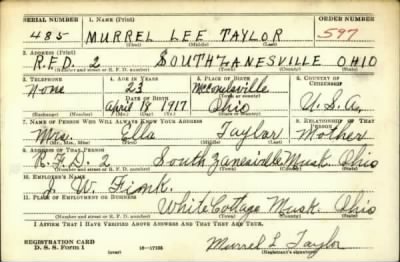 SERIAL NUMBER 1. NAME (Print) ORDER NUMBER
485 MURREL LEE TAYLOR 597
(First) (Middle) (Last)
2. ADDRESS (Print)
R.F.D. 2 SOUTH ZANESVILLE OHIO
(Number and street or R. F. D. number) (Town) (County) (State)
3. TELEPHONE 4. AGE IN YEARS 5. PLACE OF BIRTH 6. COUNTRY OF CITIZENSHIP
None 23 McConnelsville
DATE OF BIRTH
April 18 1917 Ohio U.S.A.
(Mo.) (Day) (Yr.) (State or country)
7. NAME OF PERSON WHO WILL ALWAYS KNOW YOUR ADDRESS 8. RELATIONSHIP OF THAT PERSON
Mrs. Ella Taylor Mother
(Mr., Mrs., Miss) (First) (Middle) (Last)
9. ADDRESS OF THAT PERSON
R.F.D. 2 South Zanesville Musk. Ohio
(Number and street or R. F. D. number) (Town) (County) (State)
10. EMPLOYER'S NAME
J. W. Fink.
11. PLACE OF EMPLOYMENT OR BUSINESS
White Cottage Musk. Ohio
(Number and street or R. F. D. number) (Town) (County) (State)
I AFFIRM THAT I HAVE VERIFIED ABOVE ANSWERS AND THAT THEY ARE TRUE.
REGISTRATION CARD
D. S. S. Form 1 (over) 16-17105 Murrel L Taylor
(Registrant's signature)